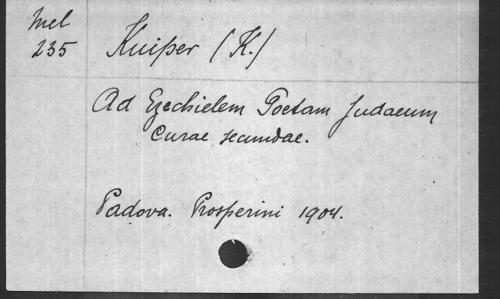 Mel
235
Kuiper (K.)
Ad Ezechielem Poetam Judaeum
Curae secundae.
Padova. Prosperini 1904.